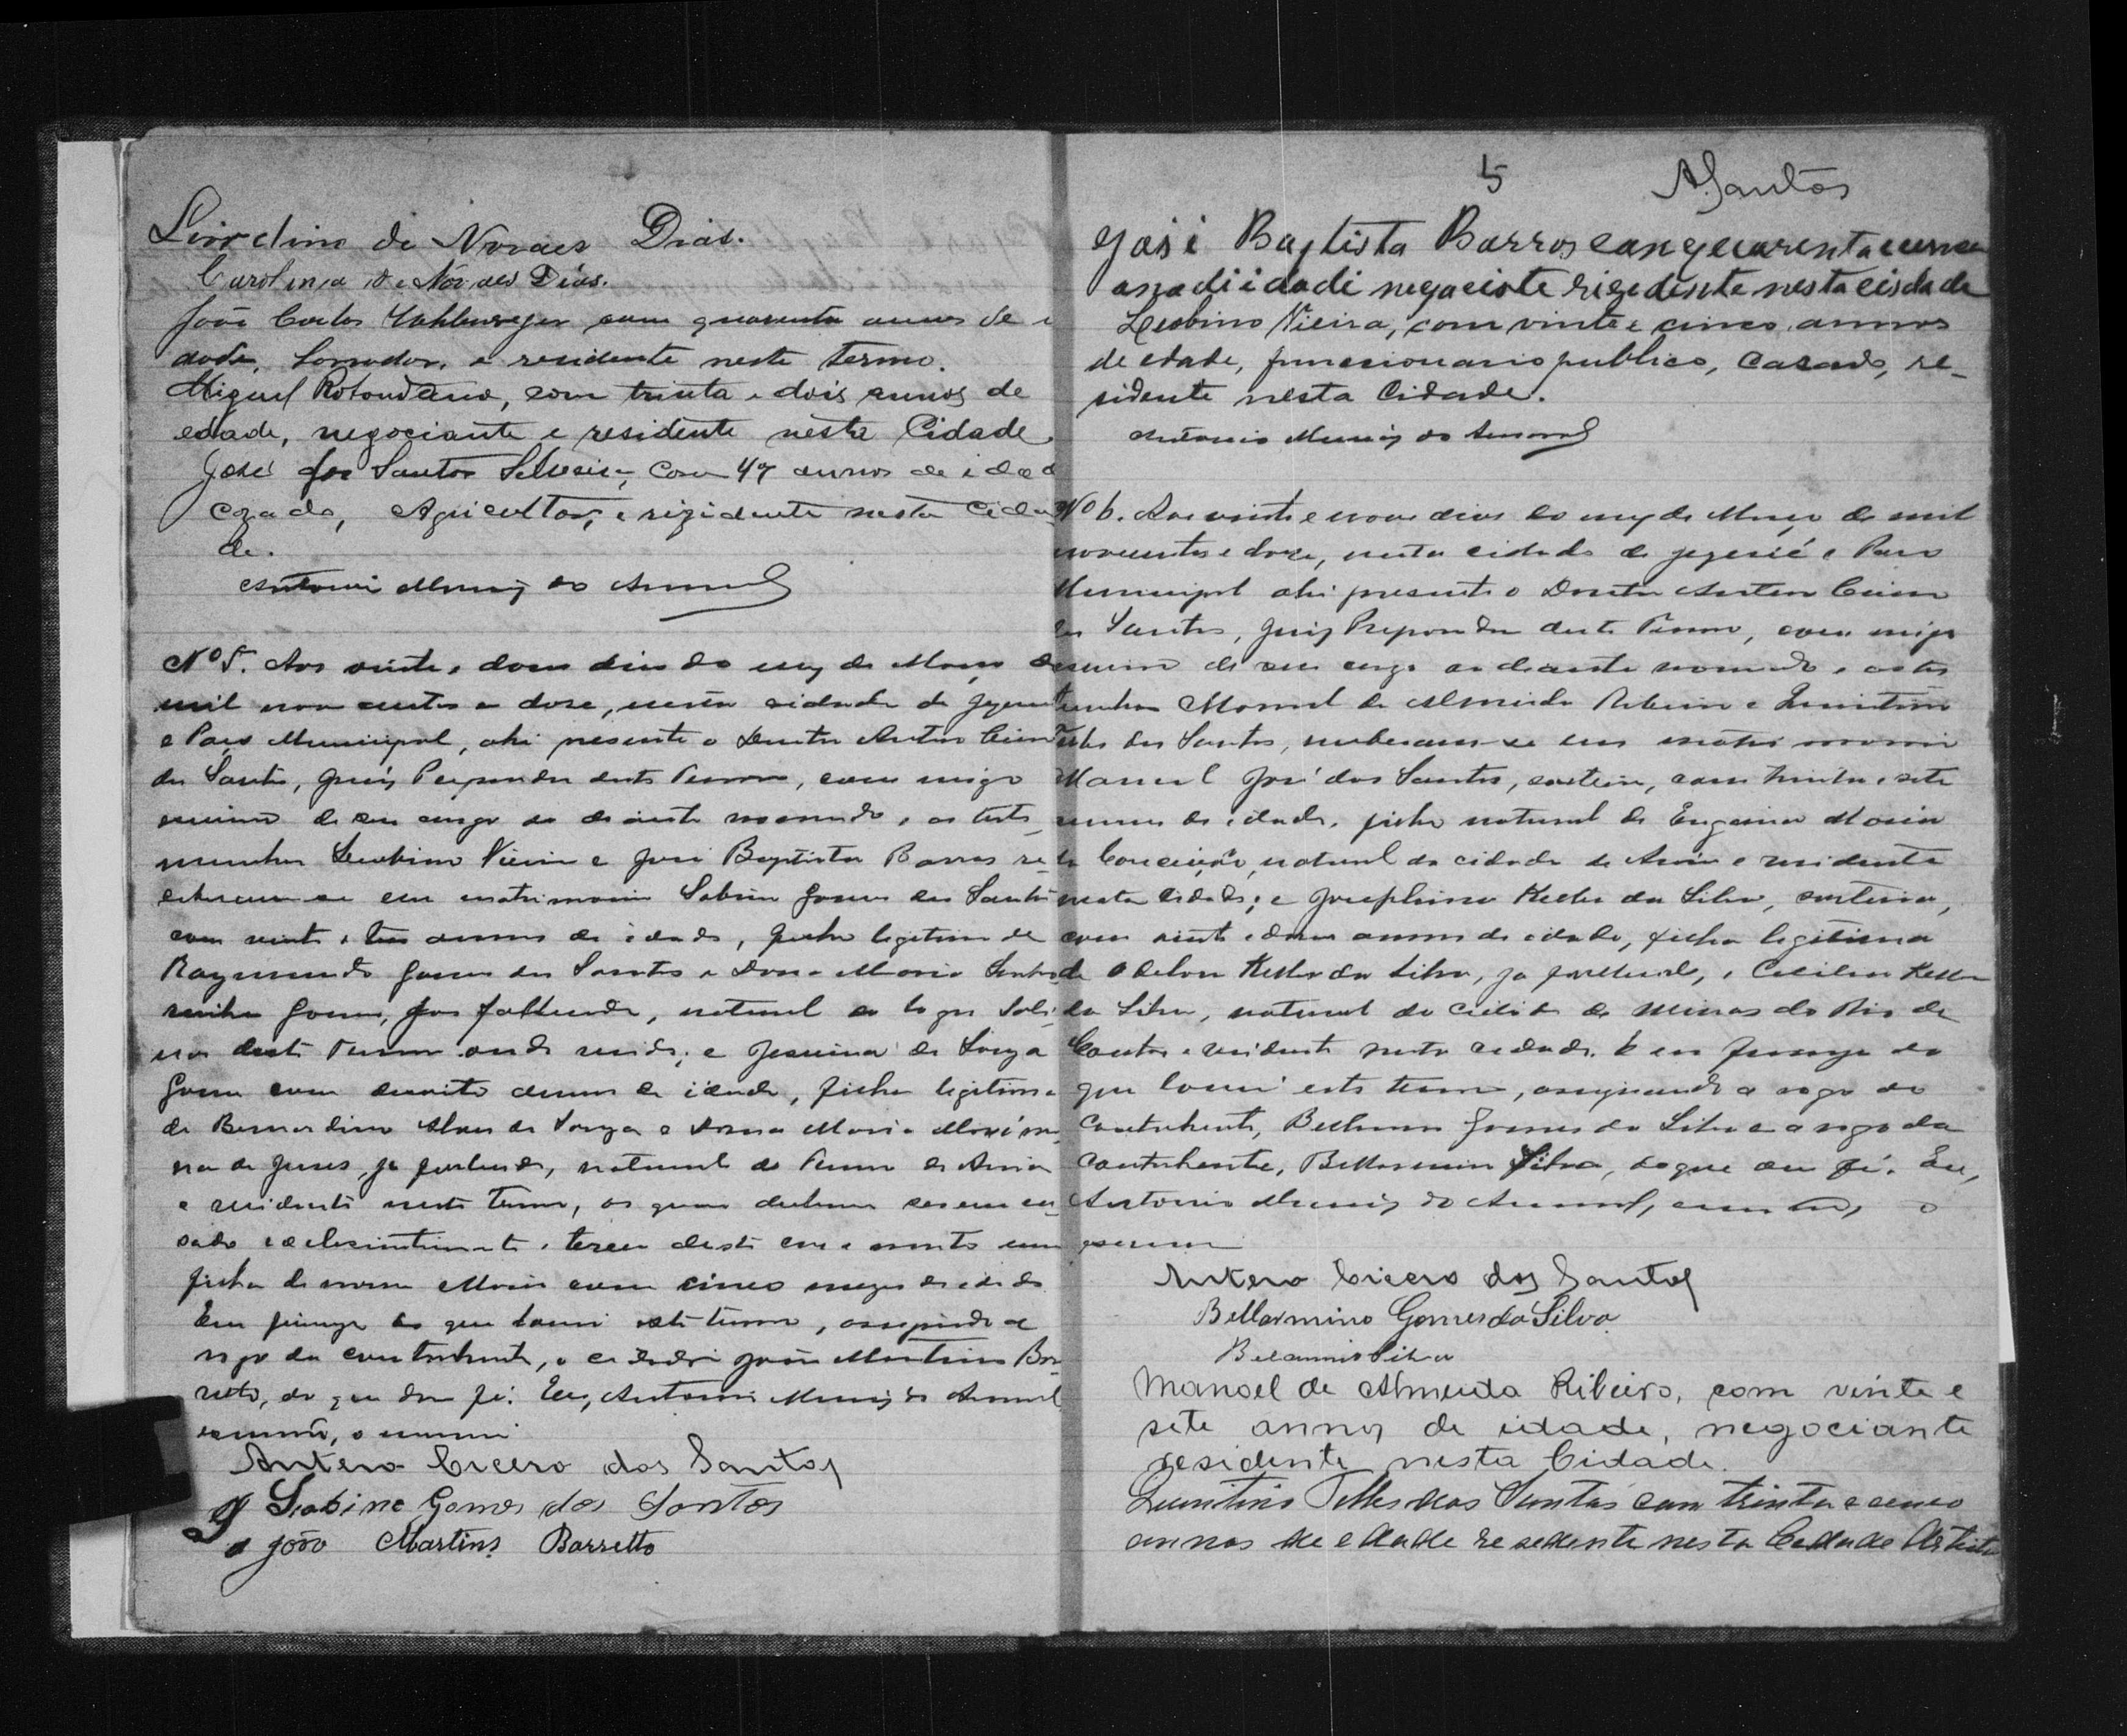 Liordino de Novaes Dias.
Carolina de Novaes Dias.
João Carlos com quarenta annos de i
dade, e residente neste termo.
Miguel Rotondano, com trinta e dois annos de
edade, negociante e residente nesta Cidade
José dos Santos Silveira, com 47 annos de idad
cazado, Agricultor, e rizidente nesta Cida
de.
Antonio Muniz do Amaral
Nº 5. Aos vinte e dous dias do mez de Março de
mil nove centos e doze, nesta cidade de Jequié
e Paço Municipal, ahi presente o Doutor Antero Cicero
dos Santos, Juiz Preparador deste Termo, com migo
escrivão de seu cargo ao deiante nomeado, as teste
munhas Leobino Vieira e José Baptista Barros re
ceberam-se em matrimonio Sabino Gomes dos Santos
com vinte e tres annos de idade, filho legitimo de
Raymundo Gomes dos Santos e Dona Maria
Gomes, natural do logar
deste Termo onde reside; e Jesuina de Souza
Gomes com dezoito annos de idade, filha legitima
de Bernardino Alves de Souza e Dona Maria
de Jesus, já fallecida, natural do Termo de Areia
e residente neste termo, os quaes declaram serem ca
sados ecclesiasticamente e terem deste casamento uma
filha de nome Maria com cinco mezes de idade
Em firmeza do que lavrei este termo, assignando a
rogo da contrahente, o cidadão João Martins Bar
retto, do que dou fé. Eu, Antonio Muniz do Amaral
escrivão, o escrevi
Antero Cicero dos Santos
Sabino Gomes dos Santos
João Martins Barretto
5 ASantos
José Baptista Barros con quarenta e
de idade negociante rezedente nesta cidade
Leobino Vieira, com vinte e cinco annos
de edade, funcionario publico, casado, re-
sidente nesta Cidade.
Antonio Muniz do Amaral
Nº 6. Aos vinte e nove dias do mez de Março de mil
novecentos e doze, nesta cidade de Jequié e Paço
Municipal ahi presente o Doutor Antero Cicero
dos Santos, Juiz Preparador deste Termo, com migo
escrivão de seu cargo ao deante nomeado e as tes
temunhas Manoel de Almeida Ribeiro e Quintino
Telles dos Santos, receberam-se em matrimonio
Manoel José dos Santos, solteiro, com trinta e sete
annos de idade, filho natural de Eugenia Maria
da Conceição, natural da cidade de Areia e residente
nesta cidade; e Josephina Keller da Silva, solteira,
com vinte e dous annos de idade, filha legitima
de Odilon Keller da Silva, já fallecido, e Cecilia Keller
da Silva, natural da cidade de Minas do Rio de
Contas e residente nesta cidade. E em firmeza do
que lavrei este termo, assignando a rogo do
Contrahente, Bellarmino Gomes da Silva e a rogo da
Contrahente, Bellarmino Silva, do que dou fé. Eu,
Antonio Muniz do Amaral, escrivão, o
escrevi
Antero Cicero dos Santos
Bellarmino Gomes da Silva
Silva
Manoel de Almeida Ribeiro, com vinte e
sete annos de idade, negociante
residente nesta Cidade.
Quintino Telles dos Santos com trinta e cinco
annos de edade resedente nesta Cedade Artista